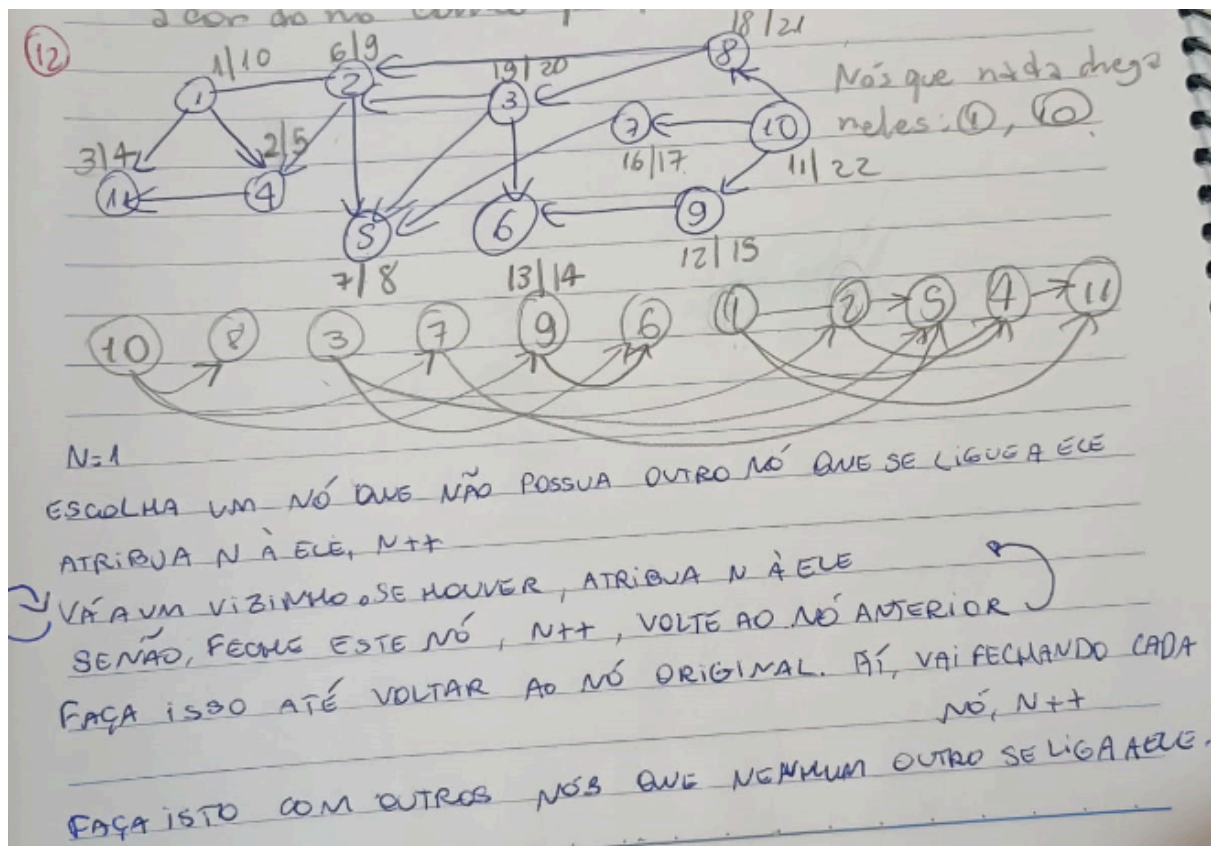 a cor do nó como
12
1/10
6/9
19/20
18/21
1
2
3
8
Nós que nada chega
neles: 1, 10
3/4
2/5
7
10
16/17
11/22
11
4
5
6
9
7/8
13/14
12/15
10 8 3 7 9 6 1 2 5 4 11
N=1
ESCOLHA UM NÓ QUE NÃO POSSUA OUTRO NÓ QUE SE LIGUE A ELE
ATRIBUA N À ELE, N++
VÁ A UM VIZINHO. SE HOUVER, ATRIBUA N À ELE
SENÃO, FECHE ESTE NÓ, N++, VOLTE AO NÓ ANTERIOR
FAÇA ISSO ATÉ VOLTAR AO NÓ ORIGINAL. AÍ, VAI FECHANDO CADA
NÓ, N++
FAÇA ISTO COM OUTROS NÓS QUE NENHUM OUTRO SE LIGA A ELE.